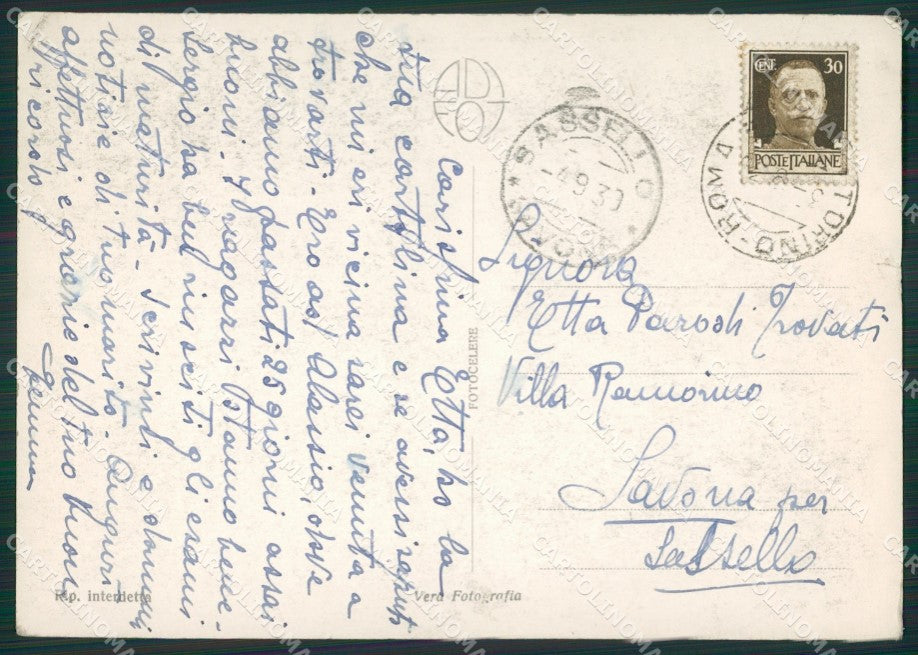 Carissima Etta, ho la
tua cartolina e se avessi saputo
che mi eri vicina sarei venuta a
trovarti - Ero ad Alassio, dove
abbiamo passati 25 giorni assai
buoni. I ragazzi stanno bene -
Sergio ha ben riusciti gli esami
di maturità - Scrivimi e dammi
notizie di tuo marito. Auguri
affettuosi e grazie del tuo buon
ricordo
Gemma
FOTOCELERE
Rip. interdetta
Vera Fotografia
SASSELLO
4.9.30
CENT. 30
POSTE ITALIANE
TORINO-ROMA
Signora
Etta Parodi Trovati
Villa Ramorino
Savona per
Sassello
CARTOLINOMANIA